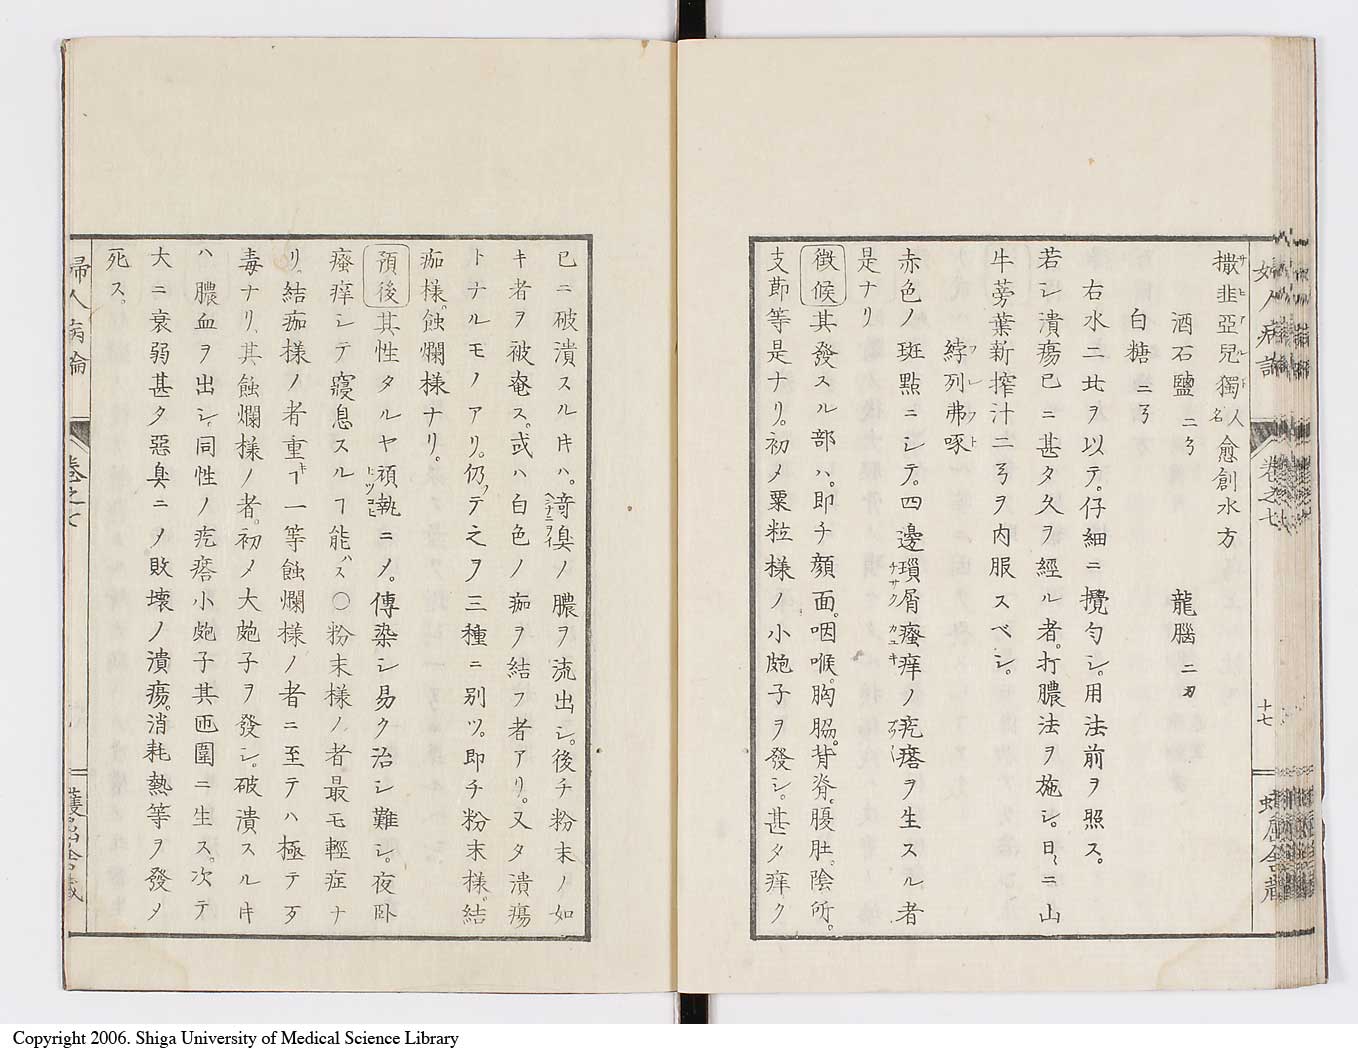 撒韭亞兒獨人名愈創水方
酒石鹽 二ㄋ 龍腦 二刄
白糖 三ㄋ
右水二廿ヲ以テ。仔細ニ攪勻シ。用法前ヲ照ス。
若シ潰瘍已ニ甚タ久ヲ經ル者。打膿法ヲ施シ。日〻ニ山
牛蒡葉新搾汁二ㄋヲ内服スベシ。
綍列弗啄フレフト
赤色ノ斑點ニシテ。四邊瑣屑チサク瘙痒カユキノ疙瘩ヲ生スル者
是ナリ
徴候 其發スル部ハ。即チ顔面。咽喉。胸脇。背脊。腹肚。陰所。
支莭等是ナリ。初メ粟粒様ノ小皰子ヲ發シ。甚タ痒ク
已ニ破潰スル𪜈ハ。竒臭ノ膿ヲ流出シ。後チ粉末ノ如
キ者ヲ被奄ス。或ハ白色ノ痂ヲ結フ者アリ。又タ潰瘍
トナルモノアリ。仍テ之ヲ三種ニ别ツ。即チ粉末様。結
痂様。蝕爛様ナリ。
預後 其性タルヤ頑執ニ〆。傳染シ易ク治シ難シ。夜臥
瘙痒シテ寢息スルヿ能ハス〇粉末様ノ者。最モ輕症ナ
リ。結痂様ノ者重キヿ一等蝕爛様ノ者ニ至テハ極テ歹
毒ナリ。其蝕爛様ノ者。初メ大皰子ヲ發シ。破潰スル𪜈
ハ膿血ヲ出シ。同性ノ疙瘩小皰子其匝圍ニ生ス。次テ
大ニ衰弱甚タ惡臭ニ〆敗壊ノ潰瘍。消耗熱等ヲ發〆
死ス。
婦人病論 卷之七
十七